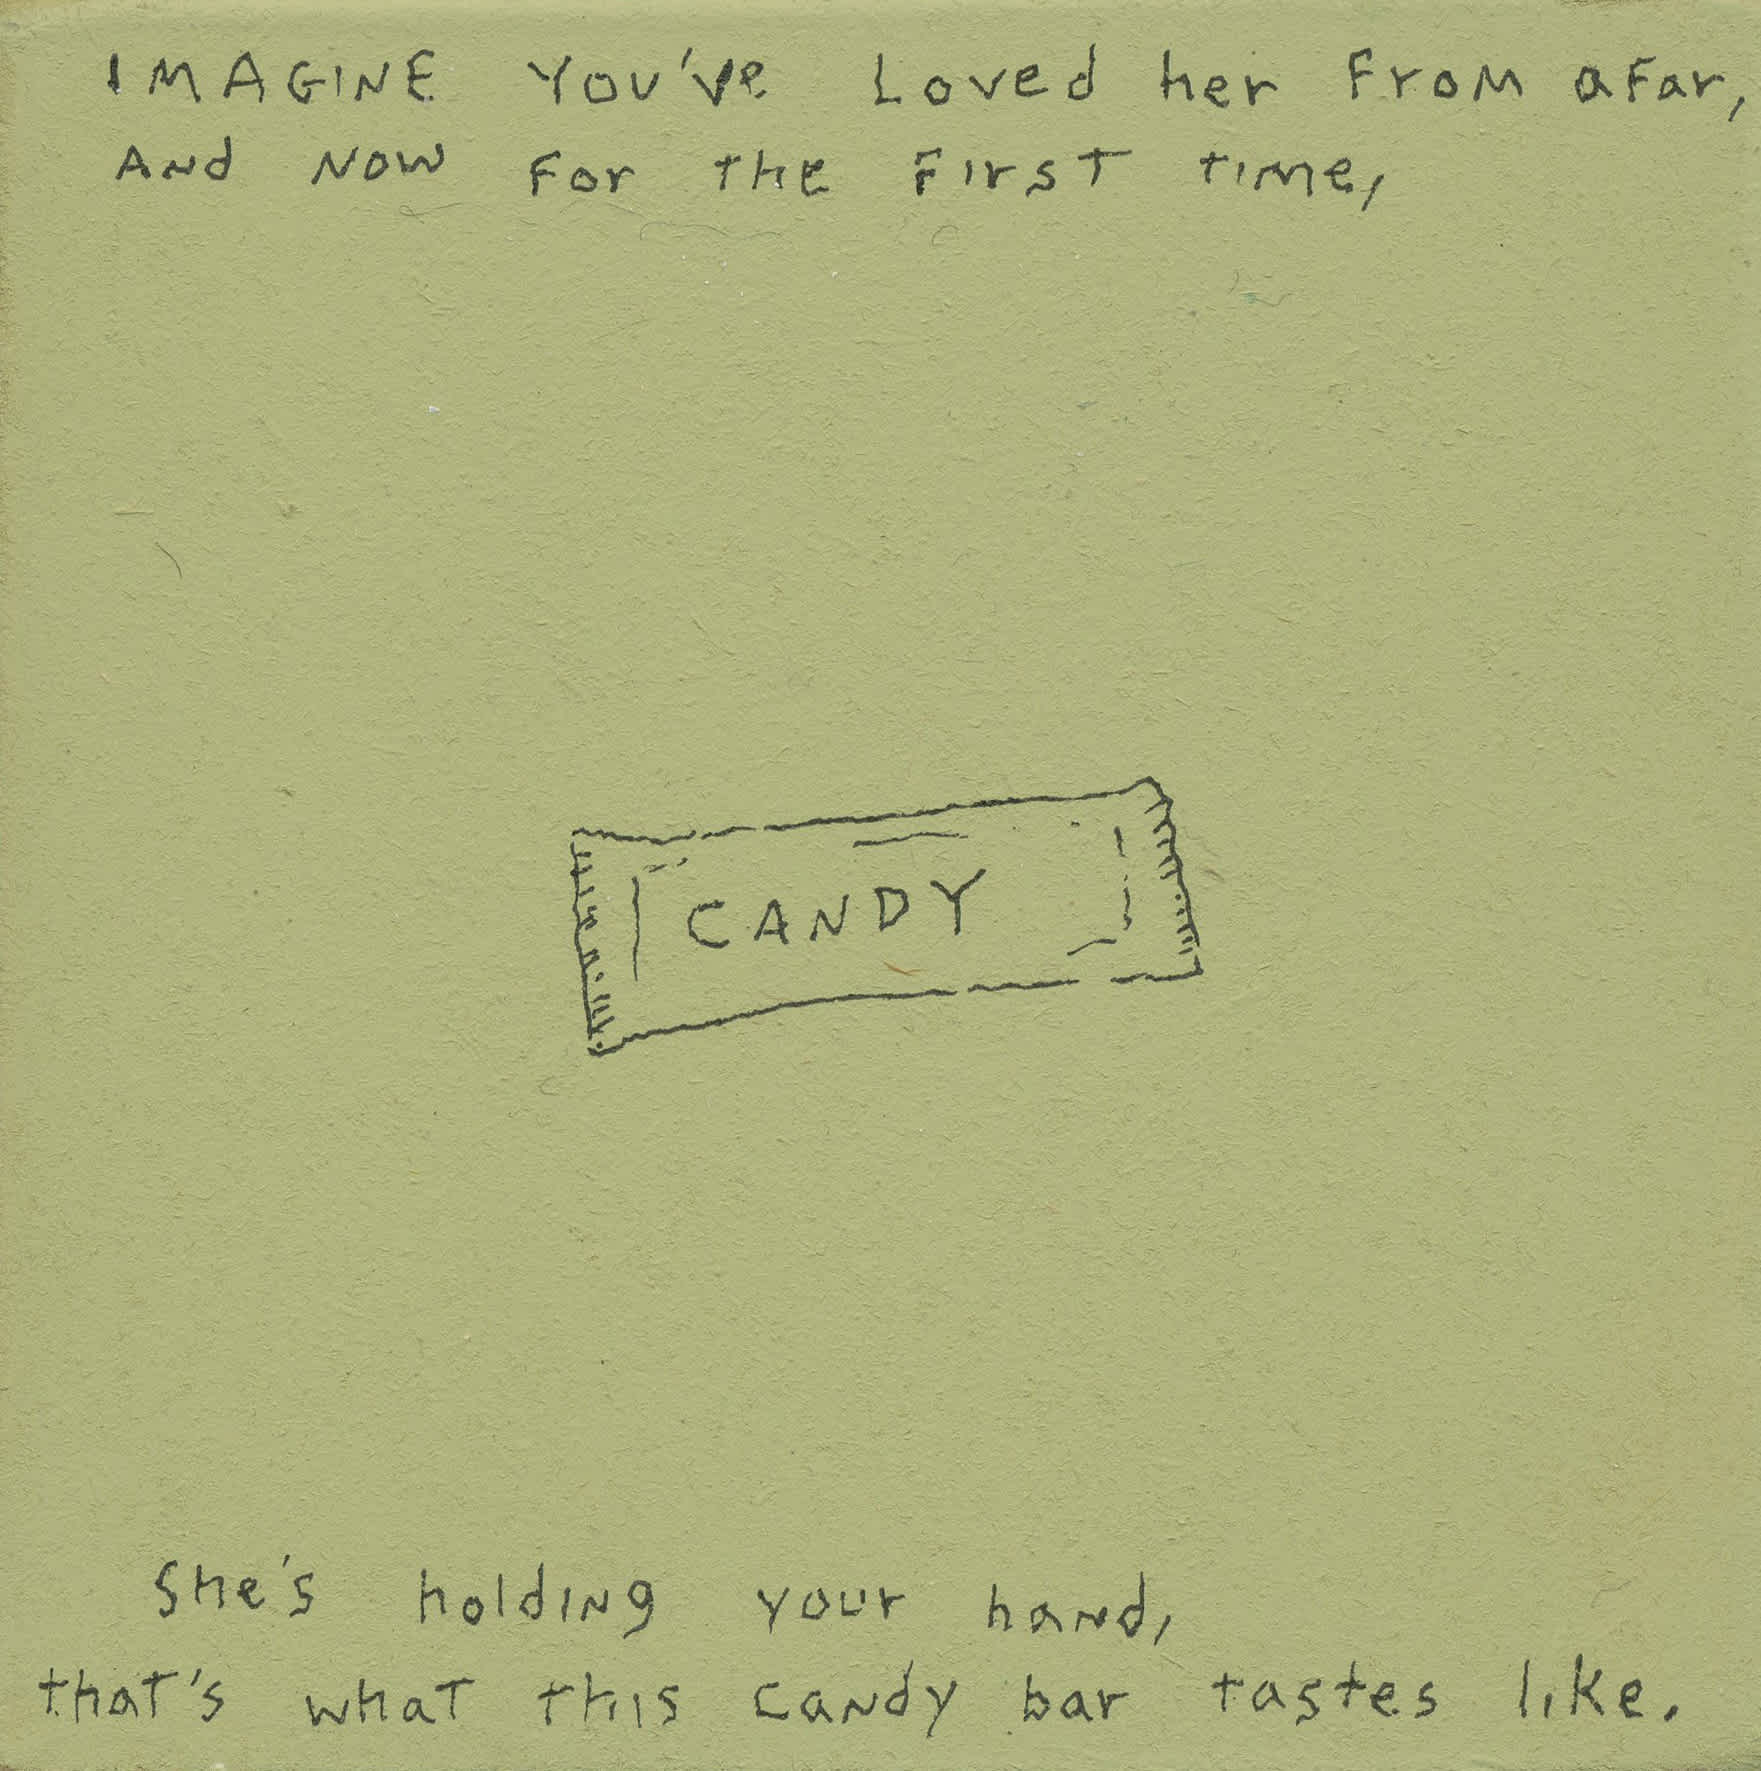 IMAGINE YOU'VE Loved her From aFar,
ANd NOW For the FIrsT tIMe,
CANDY
She's holdINg your haNd,
that's what thIs caNdy bar tastes like.